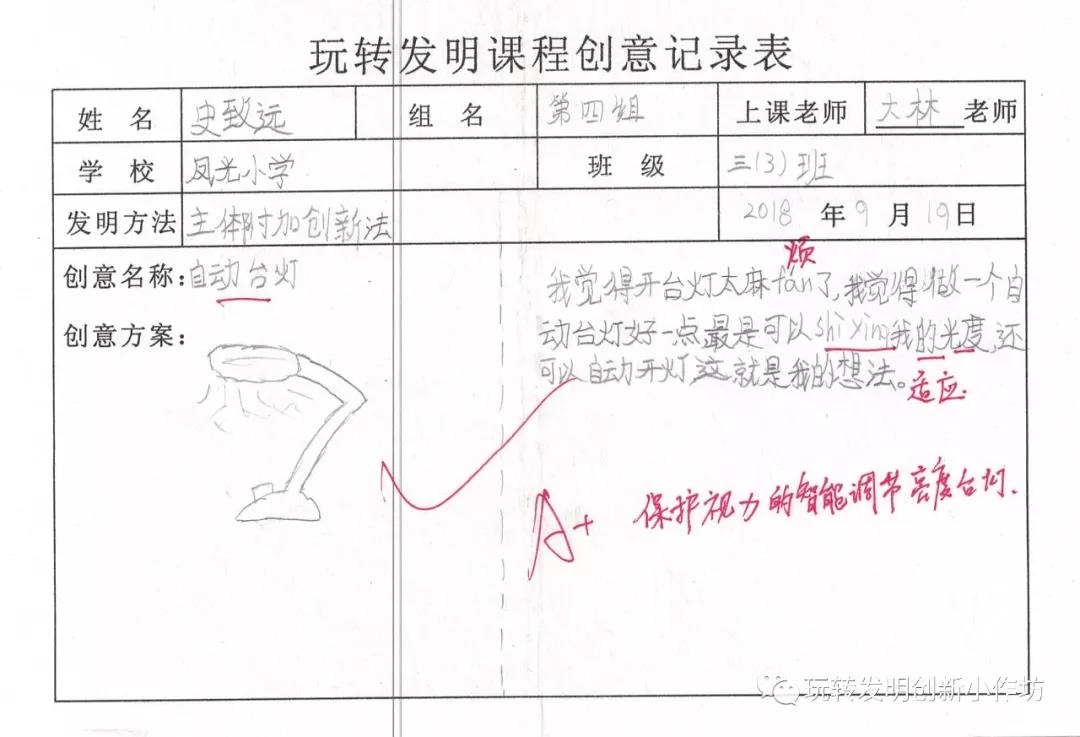 玩转发明课程创意记录表
姓 名 史致远 组 名 第四组 上课老师 大林 老师
学 校 凤光小学 班 级 三(3)班
发明方法 主体附加创新法 2018 年 9 月 19 日
创意名称:自动台灯
创意方案:
烦
我觉得开台灯太麻fán了,我觉得做一个自
动台灯好一点最是可以shì yìng我的光度,还
可以自动开灯,这就是我的想法。
适应.
A+ 保护视力的智能调节亮度台灯.
玩转发明创新小作坊